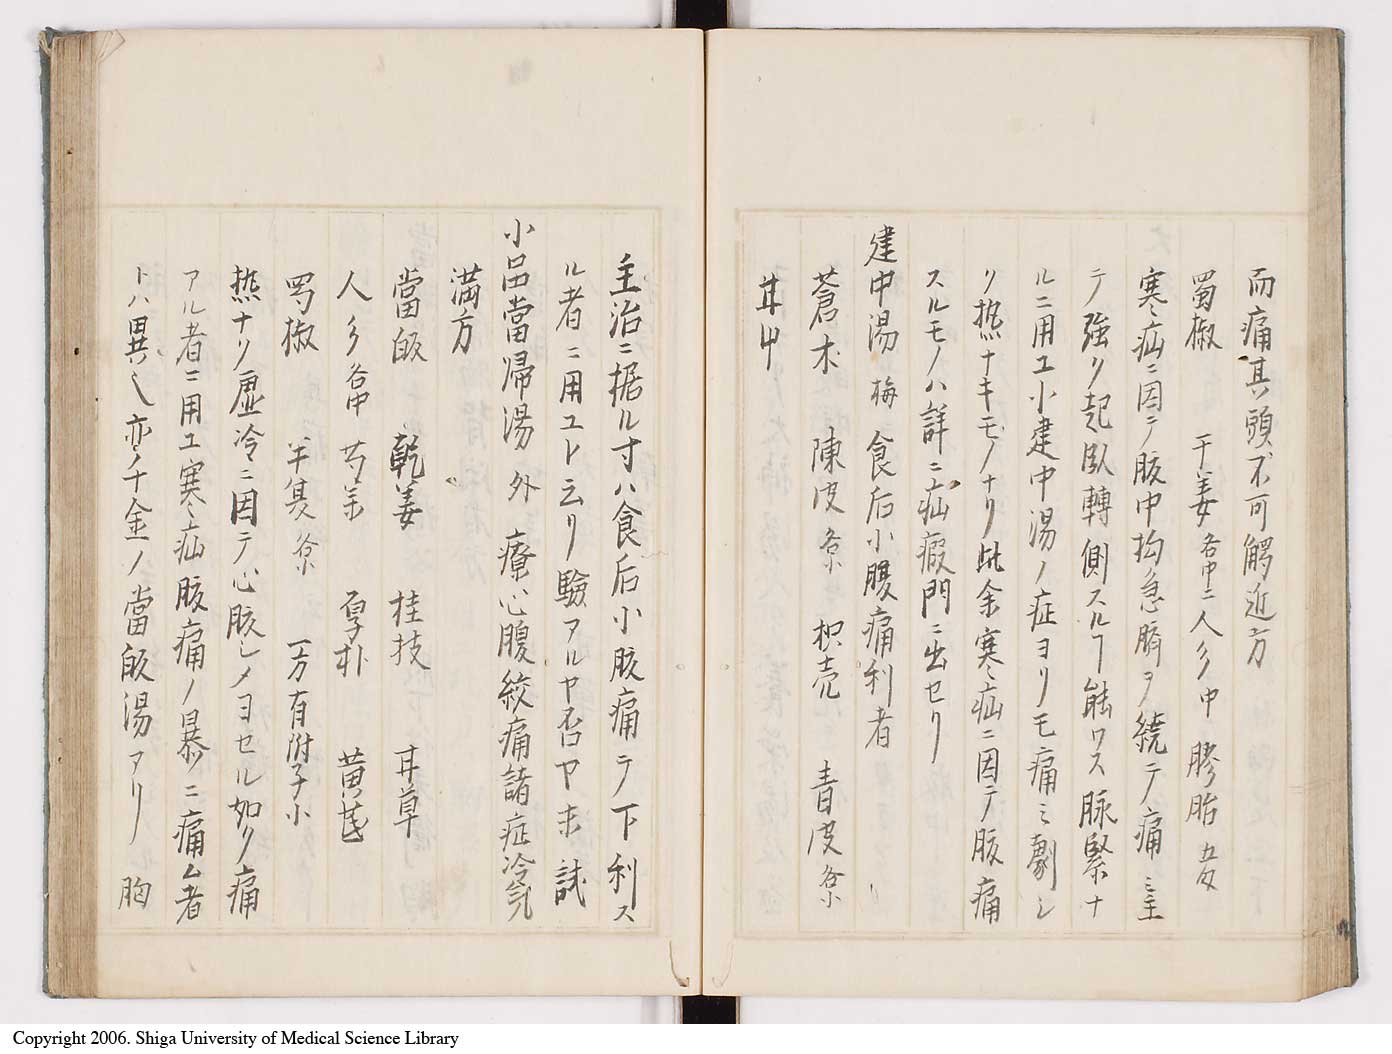 而痛其頭不可觸近方
蜀椒 干姜各中二人参中 膠胎
寒疝ニ因テ腹中拘急臍ヲ繞テ痛ミ主
テ強リ起臥轉側スルヿ能ワス脉緊ナ
ルニ用ユ小建中湯ノ症ヨリモ痛ミ劇シ
リ熱ナキモノナリ此余寒疝ニ因テ腹痛
スルモノハ詳ニ疝瘕門ニ出セリ
建中湯 梅 食后小腹痛利者
蒼朮 陳皮各小 枳壳 青皮各小
甘中
主治ニ据ル寸ハ食后小腹痛テ下利ス
ル者ニ用ユト云リ驗アルヤ否ヤ未試
小品當帰湯 外 療心腹絞痛諸症冷気
満方
當皈 乾姜 桂枝 甘草
人参各中 芍薬 厚朴 黄芪
蜀椒 半夏各小 一方有附子小
熱ナリ虚冷ニ因テ心腹シメヨセル如ク痛
アル者ニ用ユ寒疝腹痛ノ暴ニ痛ム者
トハ異ヘ亦千金ノ當皈湯アリ 胸
Copyright 2006. Shiga University of Medical Science Library